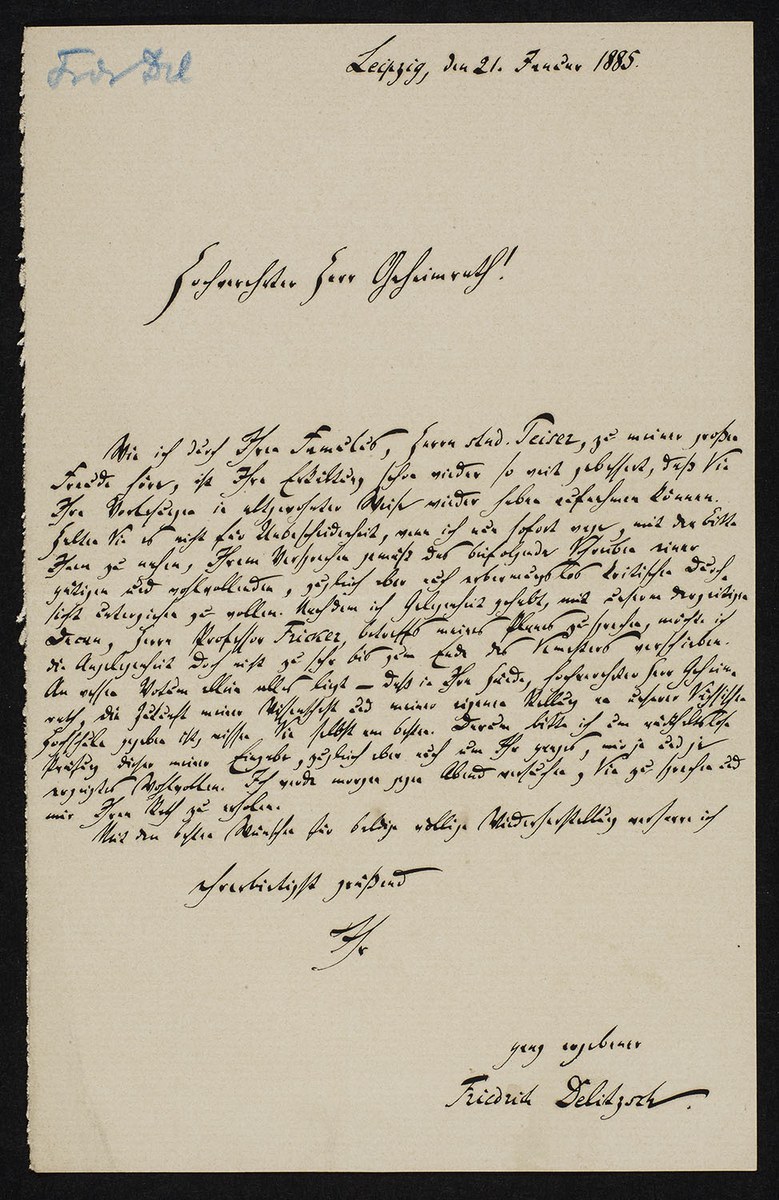 Fror Del
Leipzig, den 21. Januar 1885.
Hochverehrter Herr Geheimrath!
Wie ich durch Ihren Famulus, Herrn stud. Teiser, zu meiner großen
Freude höre, ist Ihre Erkältung schon wieder so weit gebessert, daß Sie
Ihre Vorlesungen in altgewohnter Weise wieder haben aufnehmen können.
Halten Sie es nicht für Unbescheidenheit, wenn ich nun sofort wage, mit der Bitte
Ihnen zu nahen, Ihrem Versprechen gemäß das beifolgende Schreiben einer
gütigen und wohlwollenden, zugleich aber auch erbarmungslos kritischen Durch-
sicht unterziehen zu wollen. Nachdem ich Gelegenheit gehabt, mit unserm derzeitigen
Decan, Herrn Professor Fricker, betreffs meines Planes zu sprechen, möchte ich
die Angelegenheit doch nicht zu sehr bis zum Ende des Semesters verschieben.
An wessen Votum allein alles liegt – daß in Ihre Hände, hochverehrter Herr Geheim-
rath, die Zukunft meiner Wissenschaft und meiner eigenen Stellung an unserer
Hochschule gegeben ist, wissen Sie selbst am besten. Darum bitte ich um rückhaltslose
Prüfung dieser meiner Eingabe, zugleich aber auch um Ihr großes, mir je und je
erzeigtes Wohlwollen. Ich werde morgen gegen Abend versuchen, Sie zu sprechen und
mir Ihren Rath zu erholen.
Mit den besten Wünschen für baldige völlige Wiederherstellung verharre ich
ehrerbietigst grüßend
Ihr
ganz ergebener
Friedrich Delitzsch.